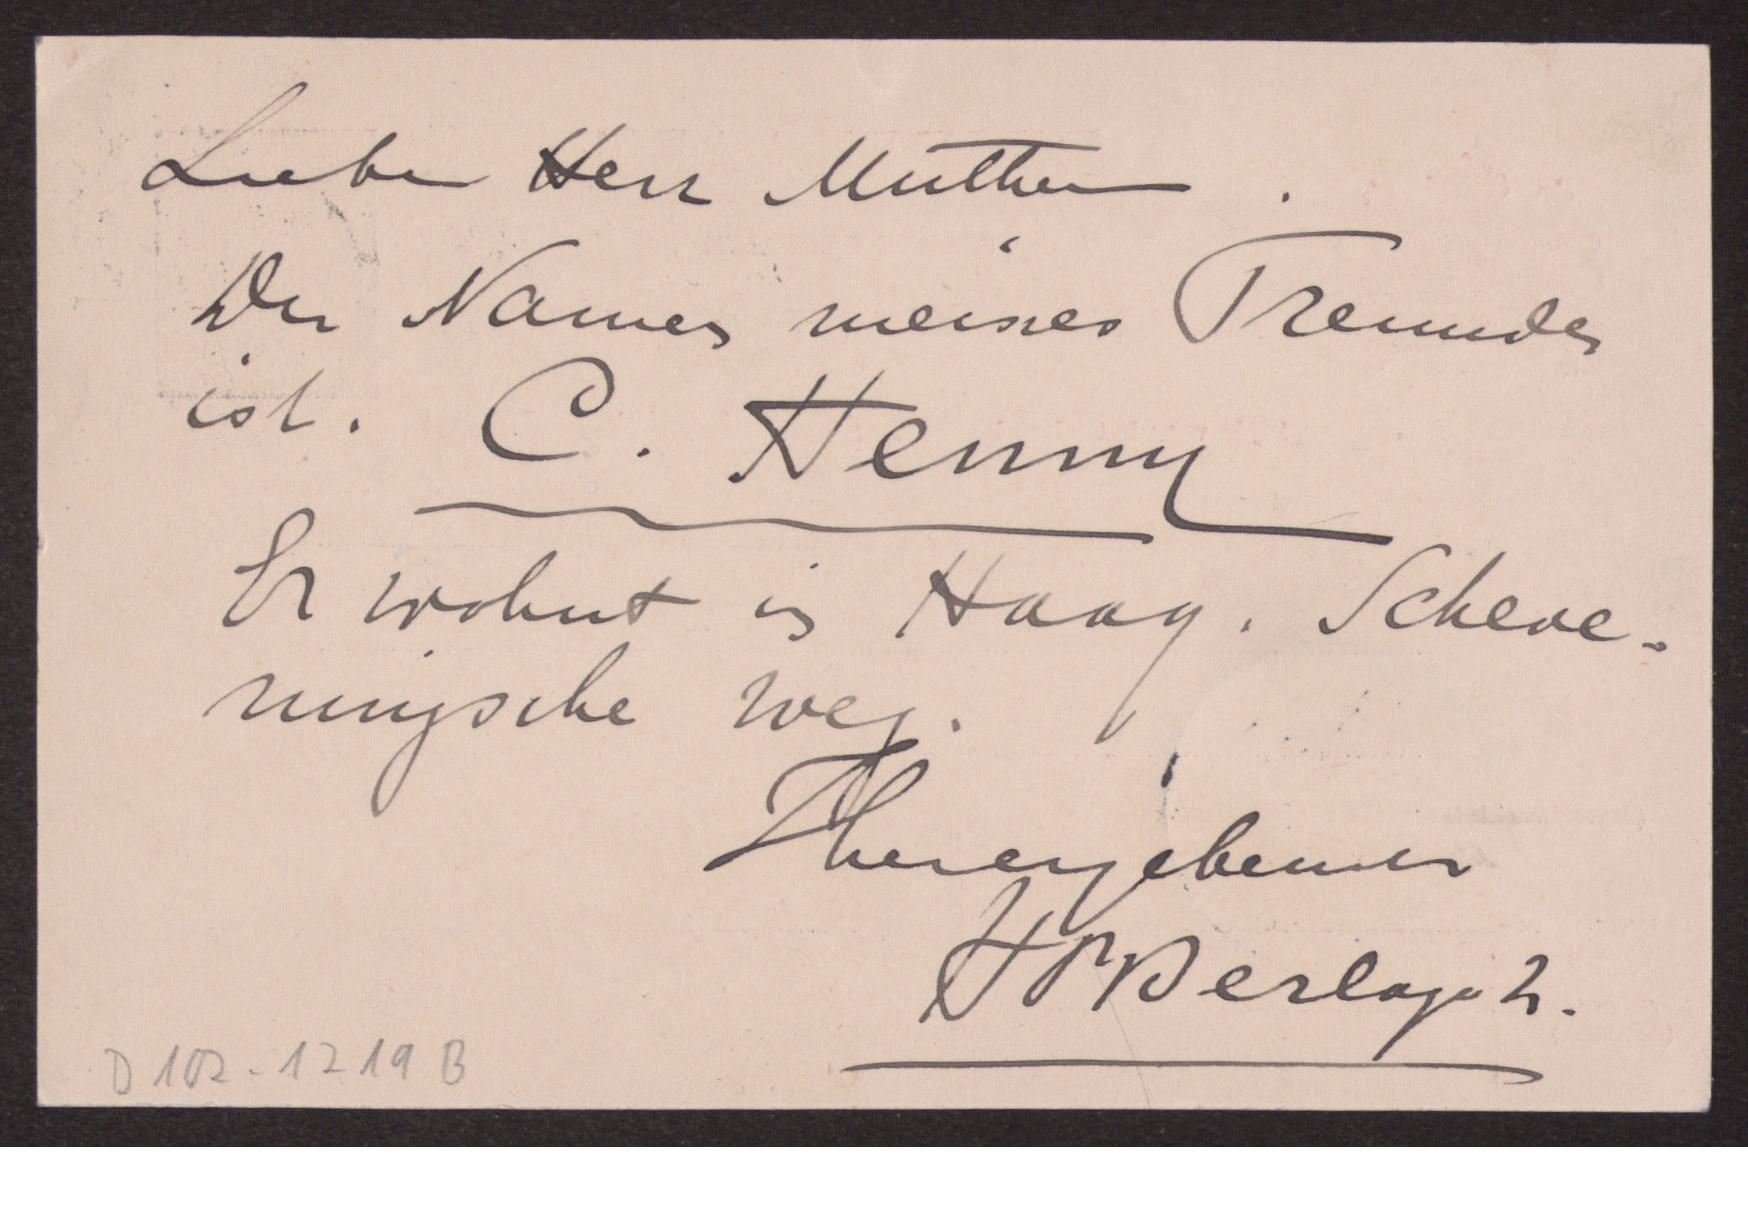 Lieber Herr Muther.
Der Namen meines Freundes
ist. C. Henny
Er wohnt in Haag. Scheve-
ningsche weg.
Ihr ergebener
HPBerlage
D 102-1219 B